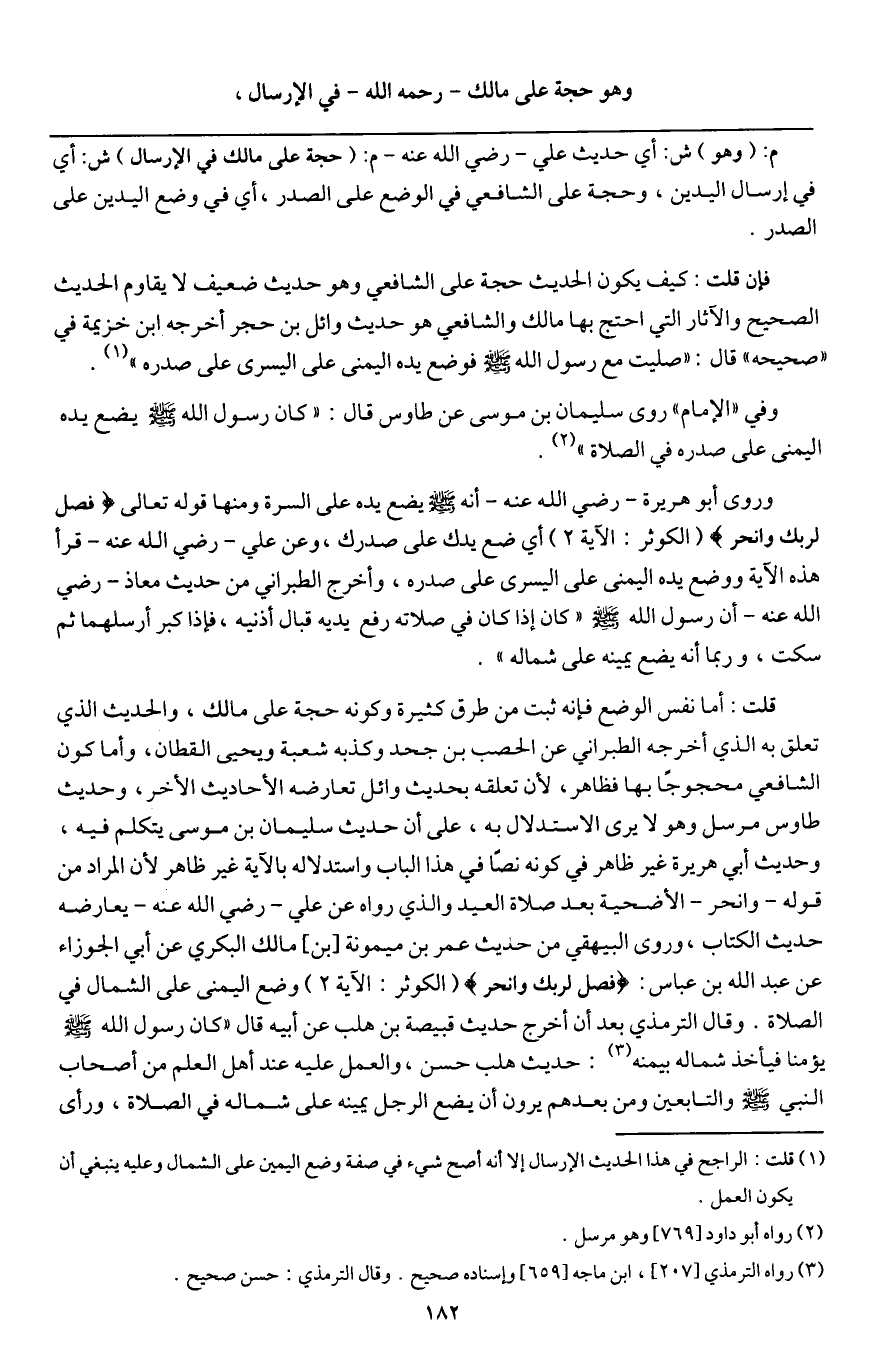 وهو حجة على مالك - رحمه الله - في الإرسال ،
م: ( وهو ) ش: أي حديث علي - رضي الله عنه - م: ( حجة على مالك في الإرسال ) ش: أي
في إرسال اليدين ، وحجة على الشافعي في الوضع على الصدر ، أي في وضع اليدين على
الصدر .
فإن قلت : كيف يكون الحديث حجة على الشافعي وهو حديث ضعيف لا يقاوم الحديث
الصحيح والآثار التي احتج بها مالك والشافعي هو حديث وائل بن حجر أخرجه ابن خزيمة في
«صحيحه» قال : «صليت مع رسول الله ﷺ فوضع يده اليمنى على اليسرى على صدره »(١) .
وفي «الإمام» روى سليمان بن موسى عن طاوس قال : « كان رسول الله ﷺ يضع يده
اليمنى على صدره في الصلاة »(٢) .
وروى أبو هريرة - رضي الله عنه - أنه ﷺ يضع يده على السرة ومنها قوله تعالى ﴿ فصل
لربك وانحر ﴾ ( الكوثر : الآية ٢ ) أي ضع يدك على صدرك ، وعن علي - رضي الله عنه - قرأ
هذه الآية ووضع يده اليمنى على اليسرى على صدره ، وأخرج الطبراني من حديث معاذ - رضي
الله عنه - أن رسول الله ﷺ « كان إذا كان في صلاته رفع يديه قبال أذنيه ، فإذا كبر أرسلهما ثم
سكت ، و ربما أنه يضع يمينه على شماله » .
قلت : أما نفس الوضع فإنه ثبت من طرق كثيرة وكونه حجة على مالك ، والحديث الذي
تعلق به الذي أخرجه الطبراني عن الحصب بن جحد وكذبه شعبة ويحيى القطان، وأما كون
الشافعي محجوجًا بها فظاهر، لأن تعلقه بحديث وائل تعارضه الأحاديث الأخر ، وحديث
طاوس مرسل وهو لا يرى الاستدلال به ، على أن حديث سليمان بن موسى يتكلم فيه ،
وحديث أبي هريرة غير ظاهر في كونه نصًا في هذا الباب واستدلاله بالآية غير ظاهر لأن المراد من
قوله - وانحر - الأضحية بعد صلاة العيد والذي رواه عن علي - رضي الله عنه - يعارضه
حديث الكتاب ، وروى البيهقي من حديث عمر بن ميمونة [بن] مالك البكري عن أبي الجوزاء
عن عبد الله بن عباس : ﴿فصل لربك وانحر ﴾ ( الكوثر : الآية ٢ ) وضع اليمنى على الشمال في
الصلاة . وقال الترمذي بعد أن أخرج حديث قبيصة بن هلب عن أبيه قال «كان رسول الله ﷺ
يؤمنا فيأخذ شماله بيمنه(٣) : حديث هلب حسن ، والعمل عليه عند أهل العلم من أصحاب
النبي ﷺ والتابعين ومن بعدهم يرون أن يضع الرجل يمينه على شماله في الصلاة ، ورأى
(١) قلت : الراجح في هذا الحديث الإرسال إلا أنه أصح شيء في صفة وضع اليمين على الشمال وعليه ينبغي أن
يكون العمل .
(٢) رواه أبو داود [٧٦٩] وهو مرسل .
(٣) رواه الترمذي [٢٠٧] ، ابن ماجه [٦٥٩] وإسناده صحيح . وقال الترمذي : حسن صحيح .
١٨٢